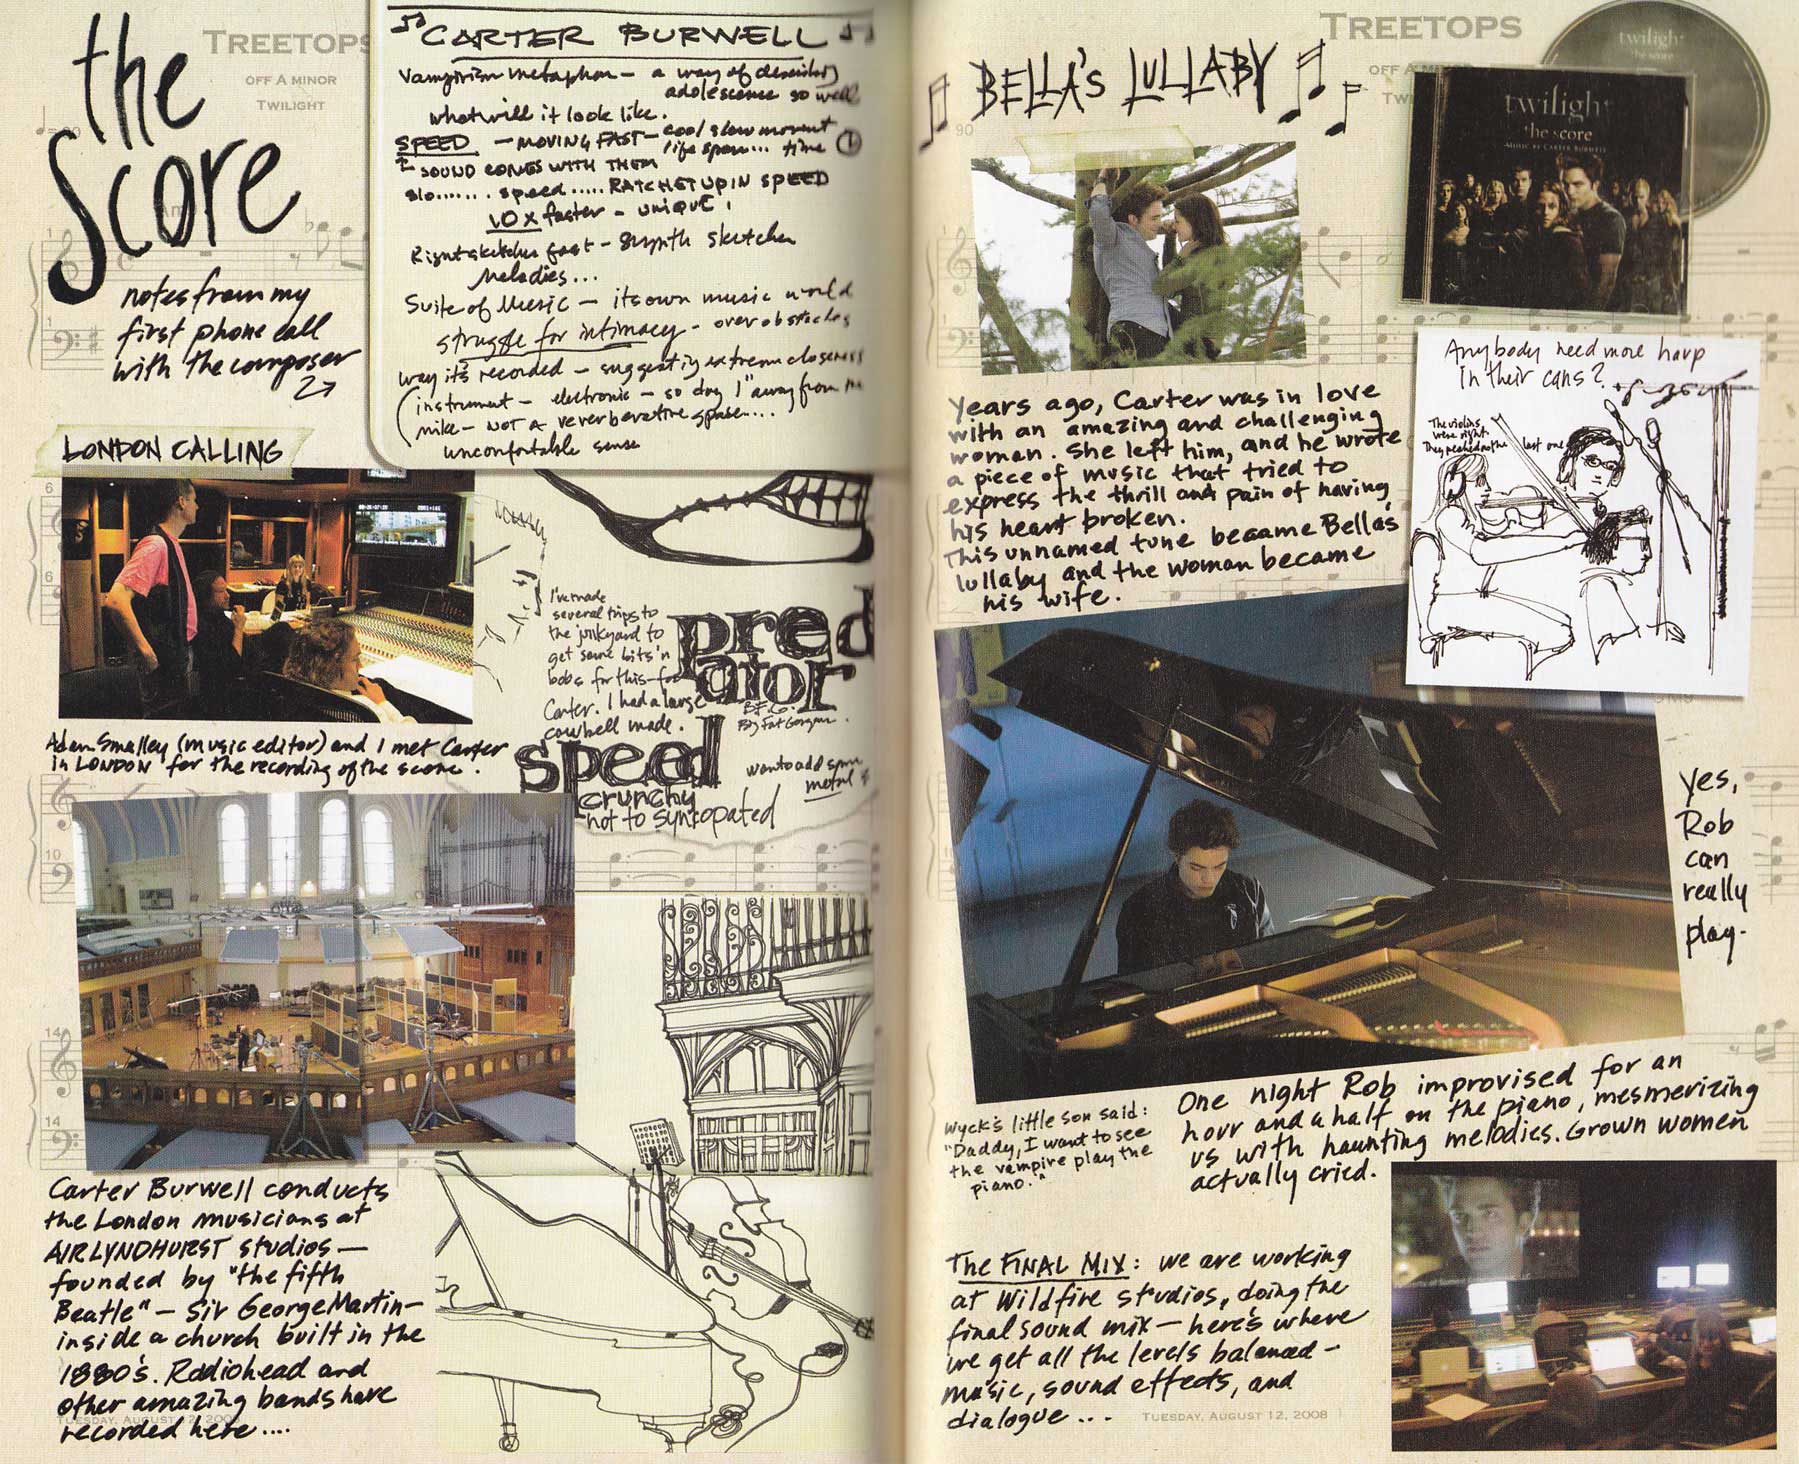 the
Score
TREETOPS
OFF A MINOR
TWILIGHT
notes from my
first phone call
with the composer
CARTER BURWELL
Vampirism metaphor – a way of describing
adolescence so well
what will it look like.
SPEED – MOVING FAST – cool slow movement
life span... time
SOUND COMES WITH THEM
slo....... speed ..... RATCHET UP IN SPEED
10 x faster – UNIQUE!
Right sketches fast – synth sketches
Melodies...
Suite of Music – its own music world
struggle for intimacy – over obstacles
way it's recorded – suggesting extreme closeness
instrument – electronic – so dry 1" away from the
mike – NOT A reverberative space....
uncomfortable sense
LONDON CALLING
I've made
several trips to
the junkyard to
get some bits 'n
bobs for this – for
Carter. I had a large
cowbell made.
predator
B.F.G.
Big Fat Gorgeous
speed
crunchy
not to syncopated
want to add some
metal
Adam Smalley (music editor) and I met Carter
in LONDON for the recording of the score.
Carter Burwell conducts
the London musicians at
AIR LYNDHURST studios –
founded by "the fifth
Beatle" – Sir George Martin –
inside a church built in the
1880's. Radiohead and
other amazing bands have
recorded here ....
TUESDAY, AUGUST 12, 2008
BELLA'S LULLABY
TREETOPS
OFF A MINOR
90
twilight
the score
twilight
the score
MUSIC BY CARTER BURWELL
Years ago, Carter was in love
with an amazing and challenging
woman. She left him, and he wrote
a piece of music that tried to
express the thrill and pain of having
his heart broken.
This unnamed tune became Bella's
lullaby and the woman became
his wife.
Anybody need more harp
in their cans?
The violins
were right.
They nailed the last one
Yes,
Rob
can
really
play.
Wyck's little son said:
"Daddy, I want to see
the vampire play the
piano."
One night Rob improvised for an
hour and a half on the piano, mesmerizing
us with haunting melodies. Grown women
actually cried.
The FINAL MIX: we are working
at Wildfire studios, doing the
final sound mix – here's where
we get all the levels balanced –
music, sound effects, and
dialogue ...
TUESDAY, AUGUST 12, 2008